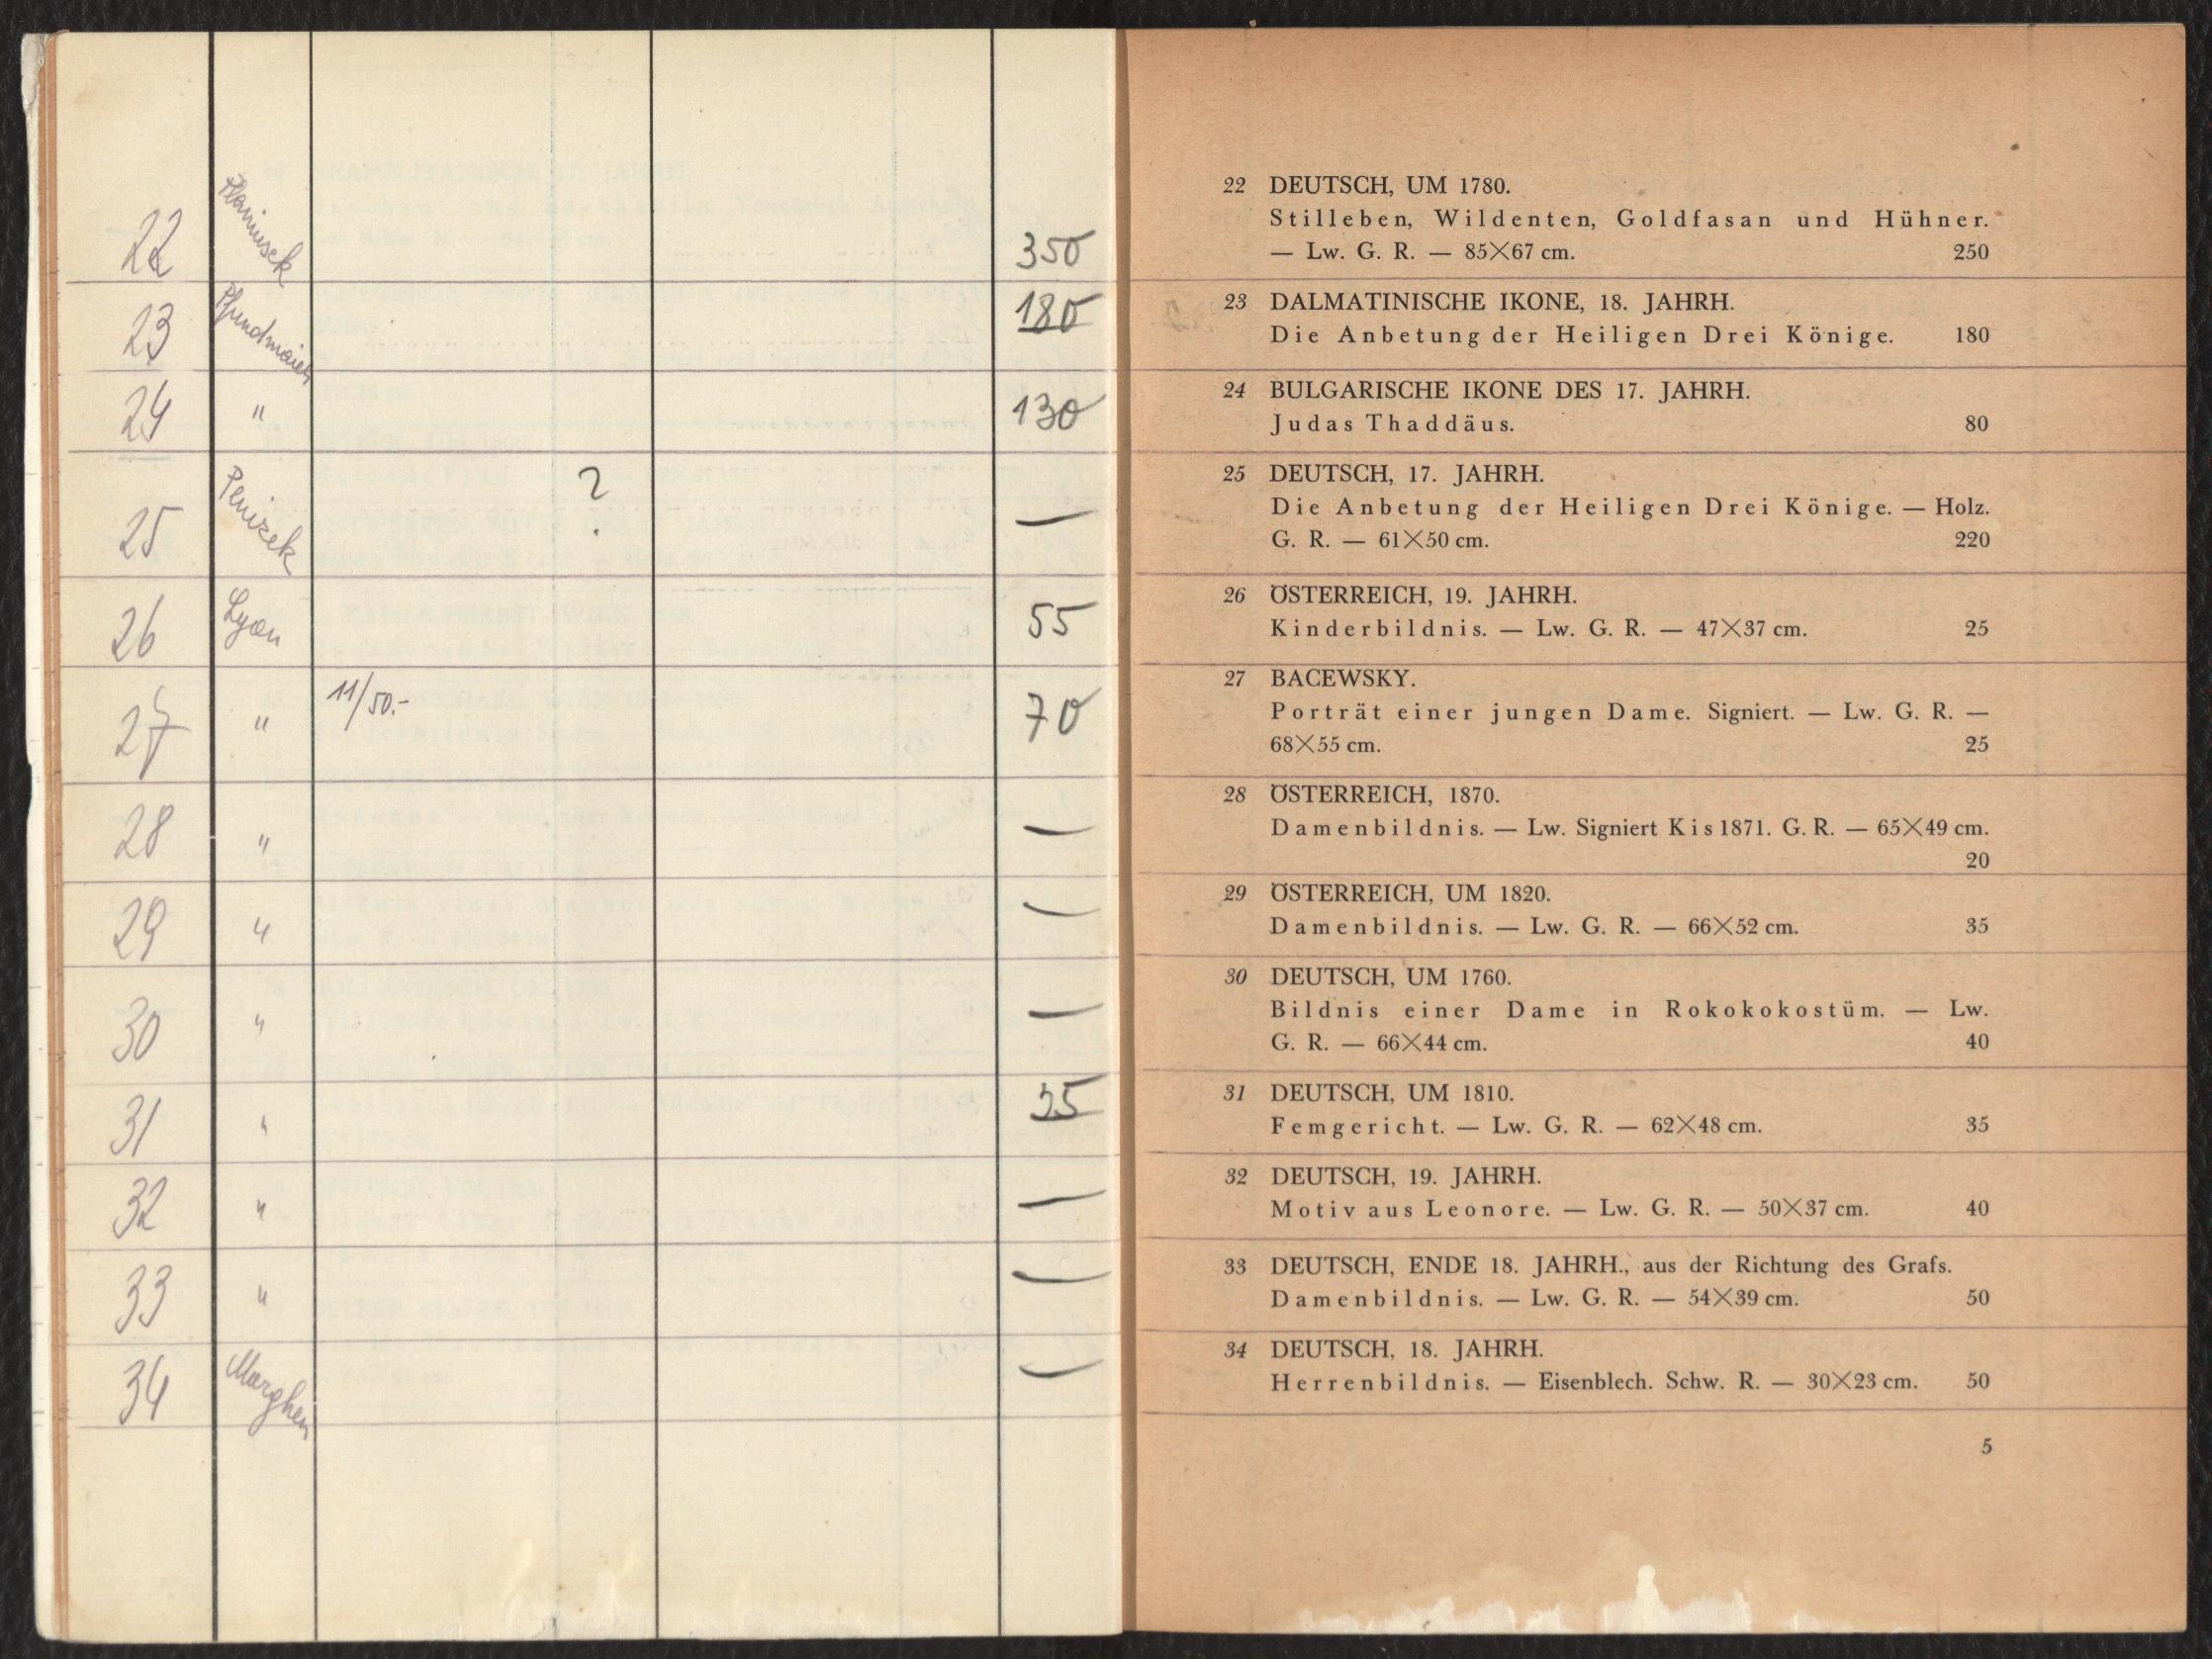 22 350
23 180
24 " 130
25 Penizek ? —
26 Lyon 55
27 " 11/50.- 70
28 " —
29 " —
30 " —
31 "
32 " —
33 " —
34 —
22 DEUTSCH, UM 1780.
Stilleben, Wildenten, Goldfasan und Hühner.
— Lw. G. R. — 85×67 cm. 250
23 DALMATINISCHE IKONE, 18. JAHRH.
Die Anbetung der Heiligen Drei Könige. 180
24 BULGARISCHE IKONE DES 17. JAHRH.
Judas Thaddäus. 80
25 DEUTSCH, 17. JAHRH.
Die Anbetung der Heiligen Drei Könige. — Holz.
G. R. — 61×50 cm. 220
26 ÖSTERREICH, 19. JAHRH.
Kinderbildnis. — Lw. G. R. — 47×37 cm. 25
27 BACEWSKY.
Porträt einer jungen Dame. Signiert. — Lw. G. R. —
68×55 cm. 25
28 ÖSTERREICH, 1870.
Damenbildnis. — Lw. Signiert Kis 1871. G. R. — 65×49 cm.
20
29 ÖSTERREICH, UM 1820.
Damenbildnis. — Lw. G. R. — 66×52 cm. 35
30 DEUTSCH, UM 1760.
Bildnis einer Dame in Rokokokostüm. — Lw.
G. R. — 66×44 cm. 40
31 DEUTSCH, UM 1810.
Femgericht. — Lw. G. R. — 62×48 cm. 35
32 DEUTSCH, 19. JAHRH.
Motiv aus Leonore. — Lw. G. R. — 50×37 cm. 40
33 DEUTSCH, ENDE 18. JAHRH., aus der Richtung des Grafs.
Damenbildnis. — Lw. G. R. — 54×39 cm. 50
34 DEUTSCH, 18. JAHRH.
Herrenbildnis. — Eisenblech. Schw. R. — 30×23 cm. 50
5